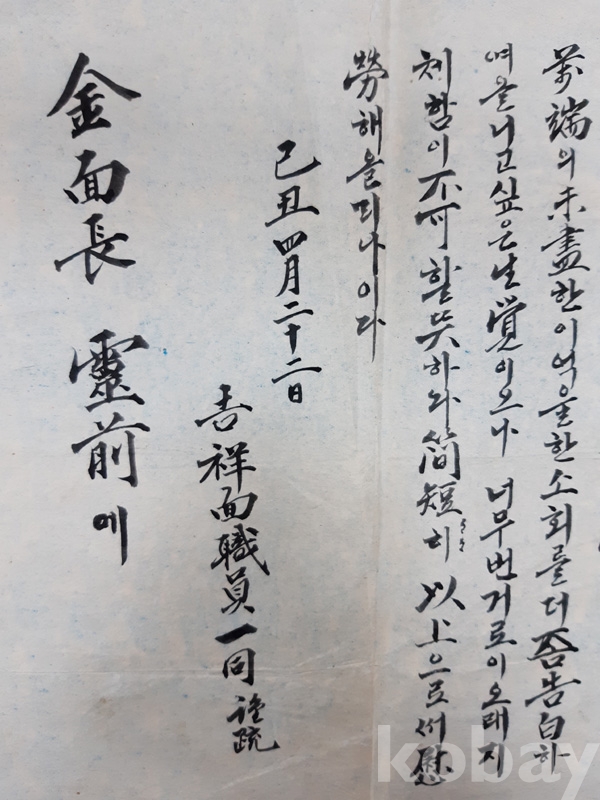 萬端의未盡한이억울한소회를더吾告白하
여올니고싶은生覺이오나 너무번거로이오래지
체함이不可할뜻하와簡短히以上으로서慰
勞해올띠나이다
己丑四月二十二日
吉祥面職員一同 謹疏
金面長 靈前에
kobay